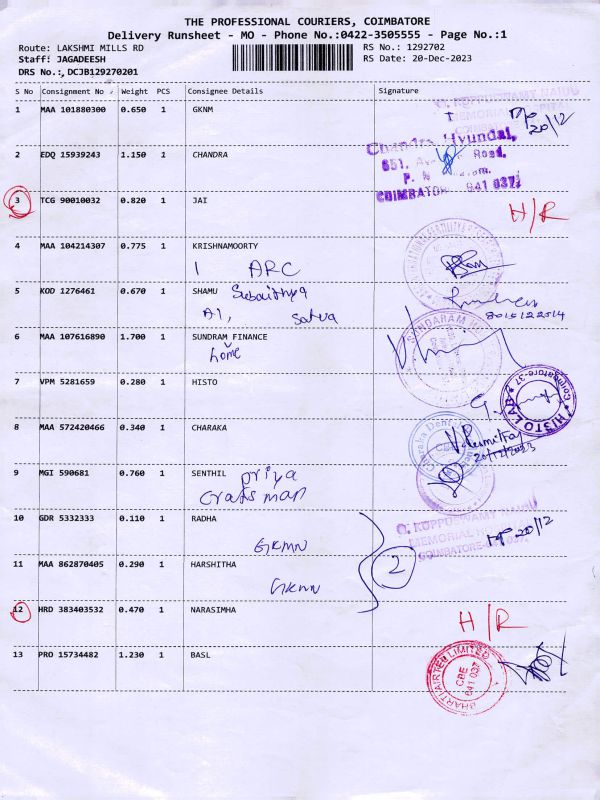 THE PROFESSIONAL COURIERS, COIMBATORE
Delivery Runsheet - MO - Phone No.:0422-3505555 - Page No.:1
Route: LAKSHMI MILLS RD
RS No.: 1292702
Staff: JAGADEESH
RS Date: 20-Dec-2023
DRS No.: DCJB129270201
S No Consignment No Weight PCS Consignee Details Signature
1 MAA 101880300 0.650 1 GKNM
20/12
2 EDQ 15939243 1.150 1 CHANDRA
Chandra Hyundai,
651, Road,
COIMBATOR 641 037
3 TCG 90010032 0.820 1 JAI
H/R
4 MAA 104214307 0.775 1 KRISHNAMOORTY
1 ARC
5 KOD 1276461 0.670 1 SHAMU
A1,
6 MAA 107616890 1.700 1 SUNDRAM FINANCE
home
SUNDARAM
7 VPM 5281659 0.280 1 HISTO
HISTO LAB
Coimbatore-37
8 MAA 572420466 0.340 1 CHARAKA
Charaka Dental
20/12/2023
9 MGI 590681 0.760 1 SENTHIL priya
Craftsman
10 GDR 5332333 0.110 1 RADHA
GKMN
G. KUPPUSWAMY NAIDU
MEMORIAL
COIMBATORE-641 037.
20/12
2
11 MAA 862870405 0.290 1 HARSHITHA
GKMN
12 HRD 383403532 0.470 1 NARASIMHA
H/R
13 PRO 15734482 1.230 1 BASL
BHARTI AIRTEL LIMITED
CBE
641 037